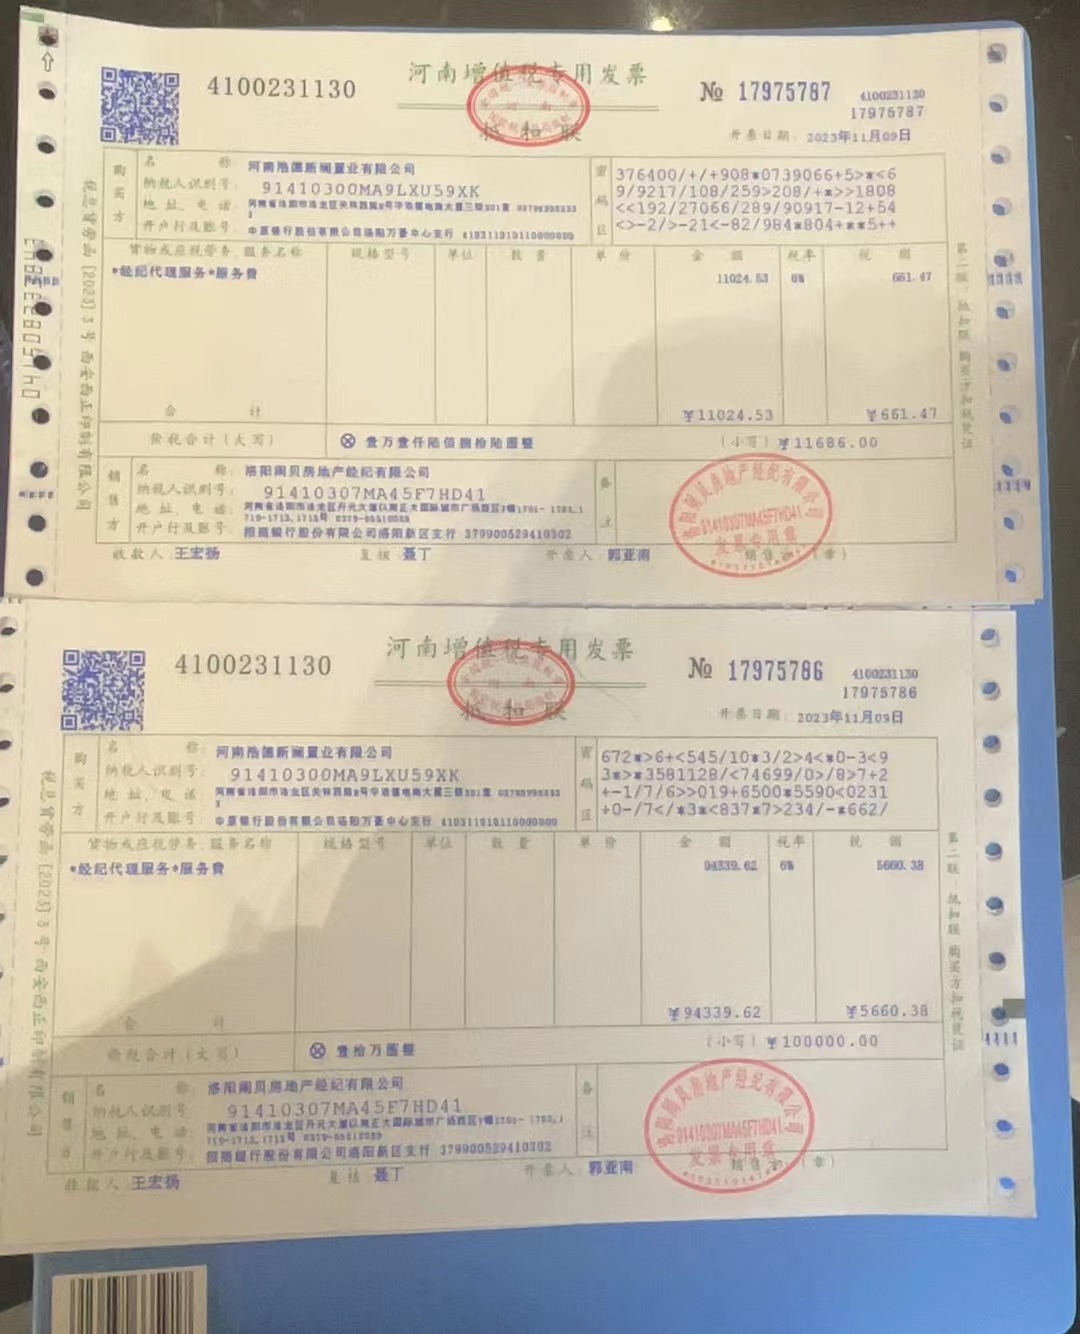 4100231130
河南增值税专用发票
抵扣联
№ 17975787
4100231130
17975787
开票日期: 2023年11月09日
购买方
名 称: 河南浩德新澜置业有限公司
纳税人识别号: 91410300MA9LXU59XK
地址、电话:
开户行及账号: 中原银行股份有限公司洛阳万豪中心支行 410311010110000000
密码区
376400/+/+908*0739066+5>*<6
9/9217/108/259>208/+*>>1808
<<192/27066/289/90917-12+54
<>-2/>-21<-82/984*804+**5++
货物或应税劳务、服务名称 规格型号 单位 数量 单价 金额 税率 税额
*经纪代理服务*服务费 11024.53 6% 661.47
合计 ¥11024.53 ¥661.47
价税合计(大写) ⊗ 壹万壹仟陆佰捌拾陆圆整 (小写) ¥11686.00
销售方
名 称: 洛阳阁贝房地产经纪有限公司
纳税人识别号: 91410307MA45F7HD41
地址、电话:
开户行及账号: 招商银行股份有限公司洛阳新区支行 379900529410302
备注
收款人 王宏扬 复核 聂丁 开票人 郭亚南 (章)
91410307MA45F7HD41
发票专用章
税总货劳函[2023]3号 西安西正印制有限公司
第二联:抵扣联 购买方扣税凭证
4100231130
河南增值税专用发票
抵扣联
№ 17975786
4100231130
17975786
开票日期: 2023年11月09日
购买方
名 称: 河南浩德新澜置业有限公司
纳税人识别号: 91410300MA9LXU59XK
地址、电话:
开户行及账号: 中原银行股份有限公司洛阳万豪中心支行 410311010110000000
密码区
672*>6+<545/10*3/2>4<*0-3<9
3*>*3581128/<74699/0>/8>7+2
+-1/7/6>>019+6500*5590<0231
+0-/7</*3*<837*7>234/-*662/
货物或应税劳务、服务名称 规格型号 单位 数量 单价 金额 税率 税额
*经纪代理服务*服务费 94339.62 6% 5660.38
合计 ¥94339.62 ¥5660.38
价税合计(大写) ⊗ 壹拾万圆整 (小写) ¥100000.00
销售方
名 称: 洛阳阁贝房地产经纪有限公司
纳税人识别号: 91410307MA45F7HD41
地址、电话:
开户行及账号: 招商银行股份有限公司洛阳新区支行 379900529410302
备注
收款人 王宏扬 复核 聂丁 开票人 郭亚南 (章)
91410307MA45F7HD41
发票专用章
税总货劳函[2023]3号 西安西正印制有限公司
第二联:抵扣联 购买方扣税凭证